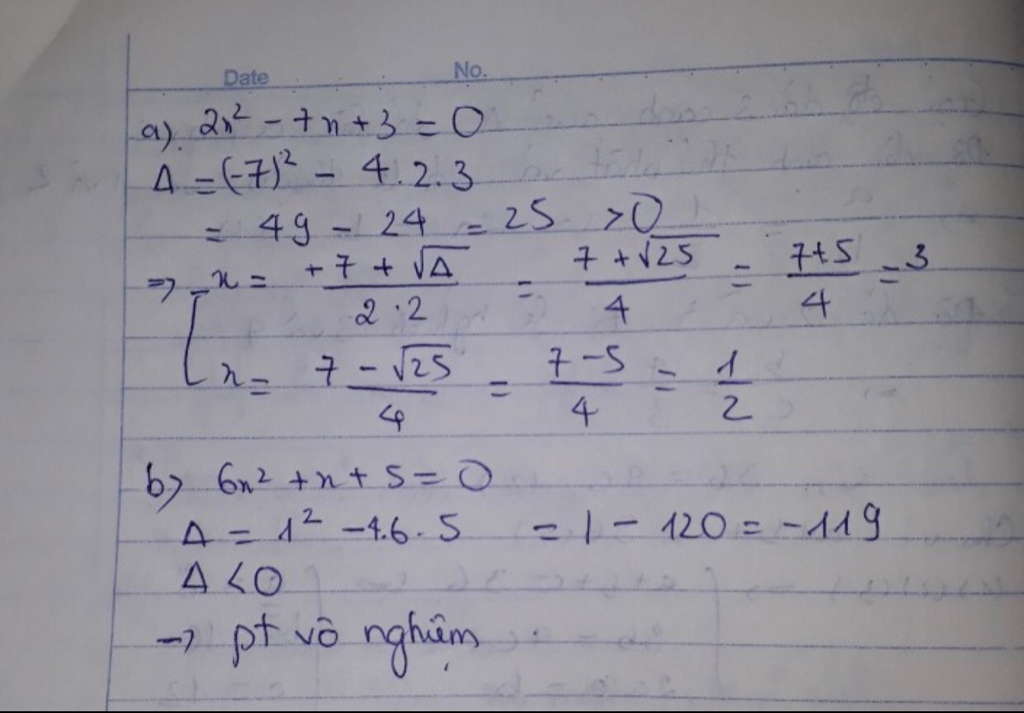 Date No.
a). 2x² - 7x + 3 = 0
Δ = (-7)² - 4.2.3
= 49 - 24 = 25 > 0
=> [ x = +7 + √Δ / 2.2 = 7 + √25 / 4 = 7+5 / 4 = 3
x = 7 - √25 / 4 = 7 - 5 / 4 = 1 / 2
b) 6x² + x + 5 = 0
Δ = 1² - 4.6.5 = 1 - 120 = -119
Δ < 0
→ pt vô nghiệm